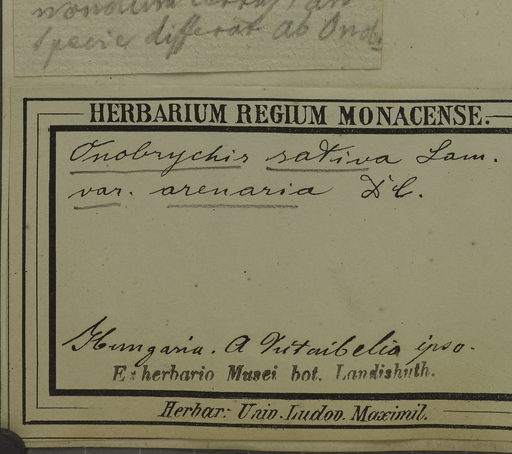 nondum
specie differat ab Onob.
HERBARIUM REGIUM MONACENSE.
Onobrychis sativa Lam.
var. arenaria DC.
Hungaria. A Kitaibelio ipso.
Ex herbario Musei bot. Landishuth.
Herbar: Univ. Ludov. Maximil.